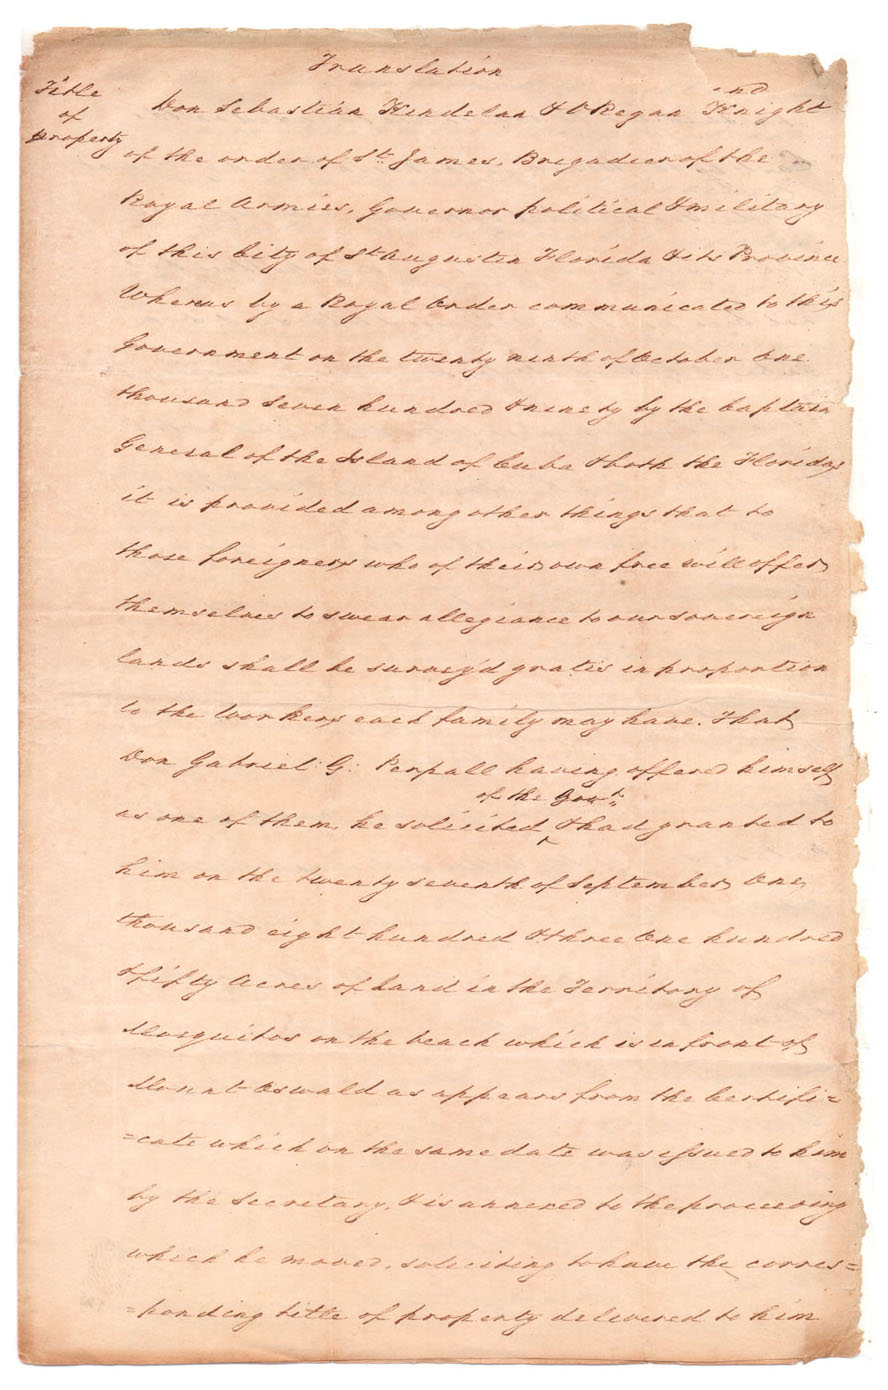 Translation
Title
of
property
Don Sebastian Kindelan & O Regan Knight
of the order of St. James, Brigadier of the
Royal Armies, Governor political & military
of this City of St Augustin Florida & its Province
Whereas by a Royal Order communicated to this
Government on the twenty ninth of October One
thousand Seven hundred & ninety by the Captain
General of the Island of Cuba & both the Floridas
it is provided among other things that to
those foreigners who of their own free will offer
themselves to swear allegiance to our sovereign
lands shall be survey'd gratis in proportion
to the workers each family may have. That
Don Gabriel. G: Perpall having offered himself
of the Govt.
as one of them, he solicited & had granted to
him on the twenty seventh of September One
thousand eight hundred & three One hundred
& fifty Acres of Land in the Territory of
Mosquitos on the beach which is in front of
Mount Oswald as appears from the Certifi=
=cate which on the same date was issued to him
by the Secretary, & is annexed to the proceeding
which he moved, soliciting to have the corres=
=ponding title of property delivered to him